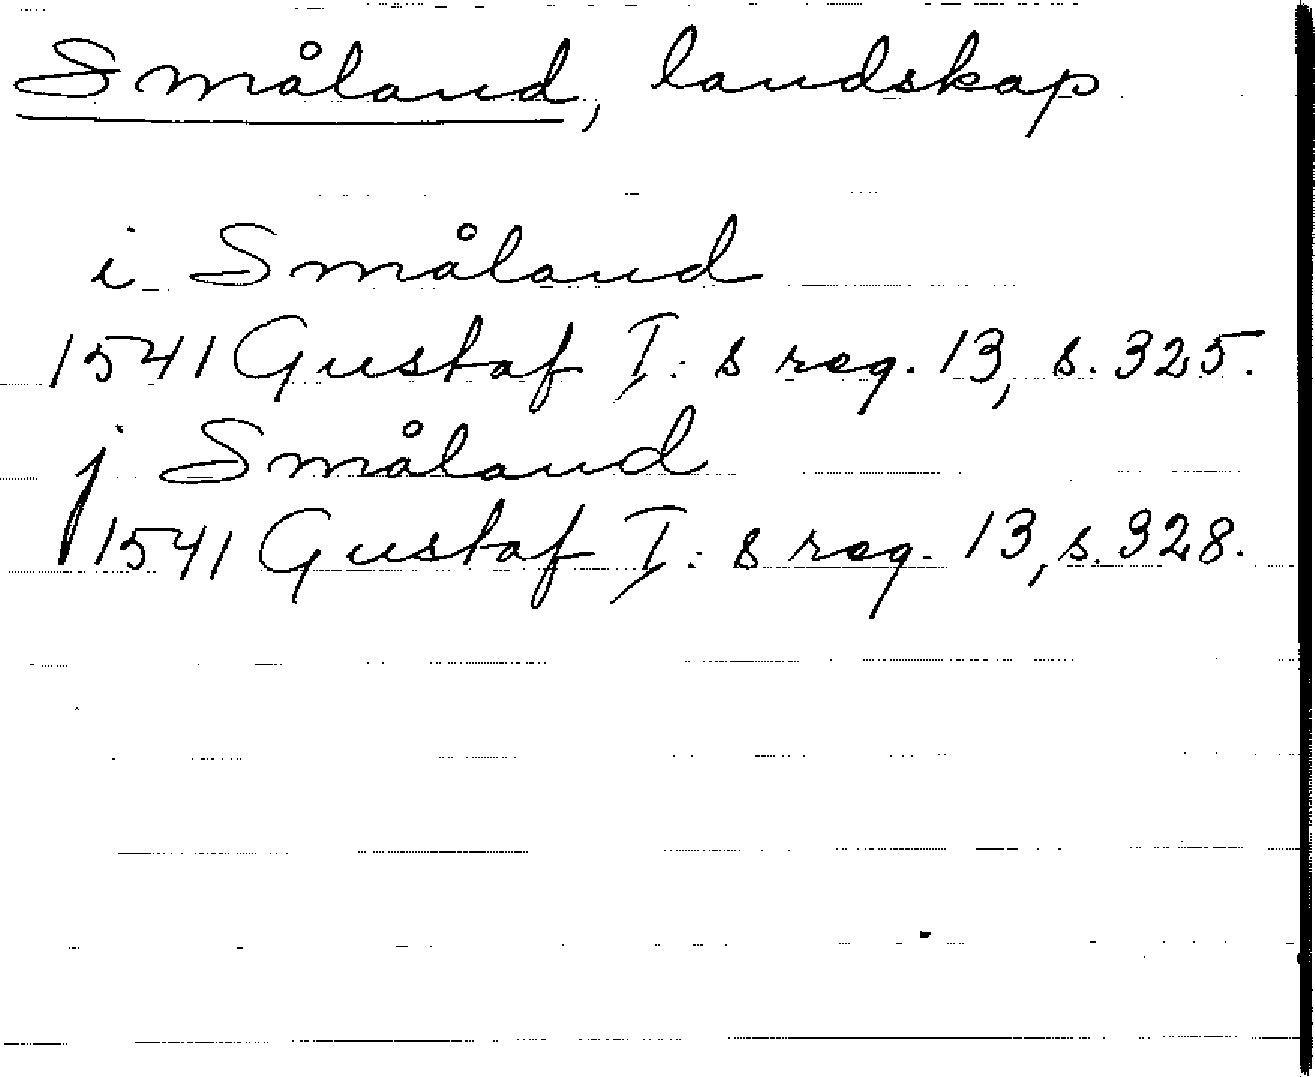 Småland, landskap
i Småland
1541 Gustaf I: s reg. 13, s. 325.
j Småland
1541 Gustaf I: s reg. 13, s. 328.